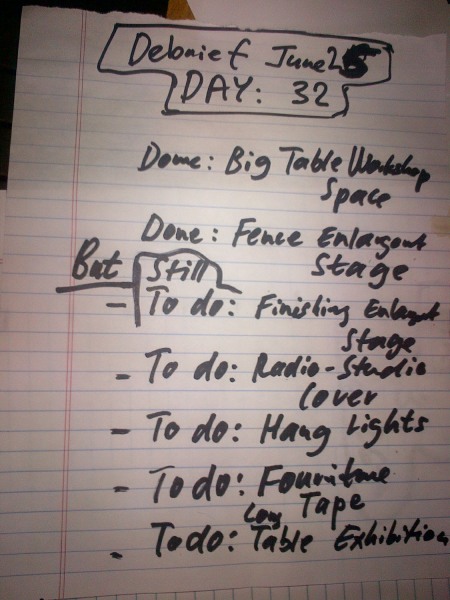 Debrief June 25
DAY: 32
Done: Big Table Workshop
Space
Done: Fence Enlargout
Stage
But Still
- To do: Finishing Enlargut
Stage
- To do: Radio-Studio
Cover
- To do: Hang Lights
- To do: Fournitune
Tape
- To do: Long Table Exhibition